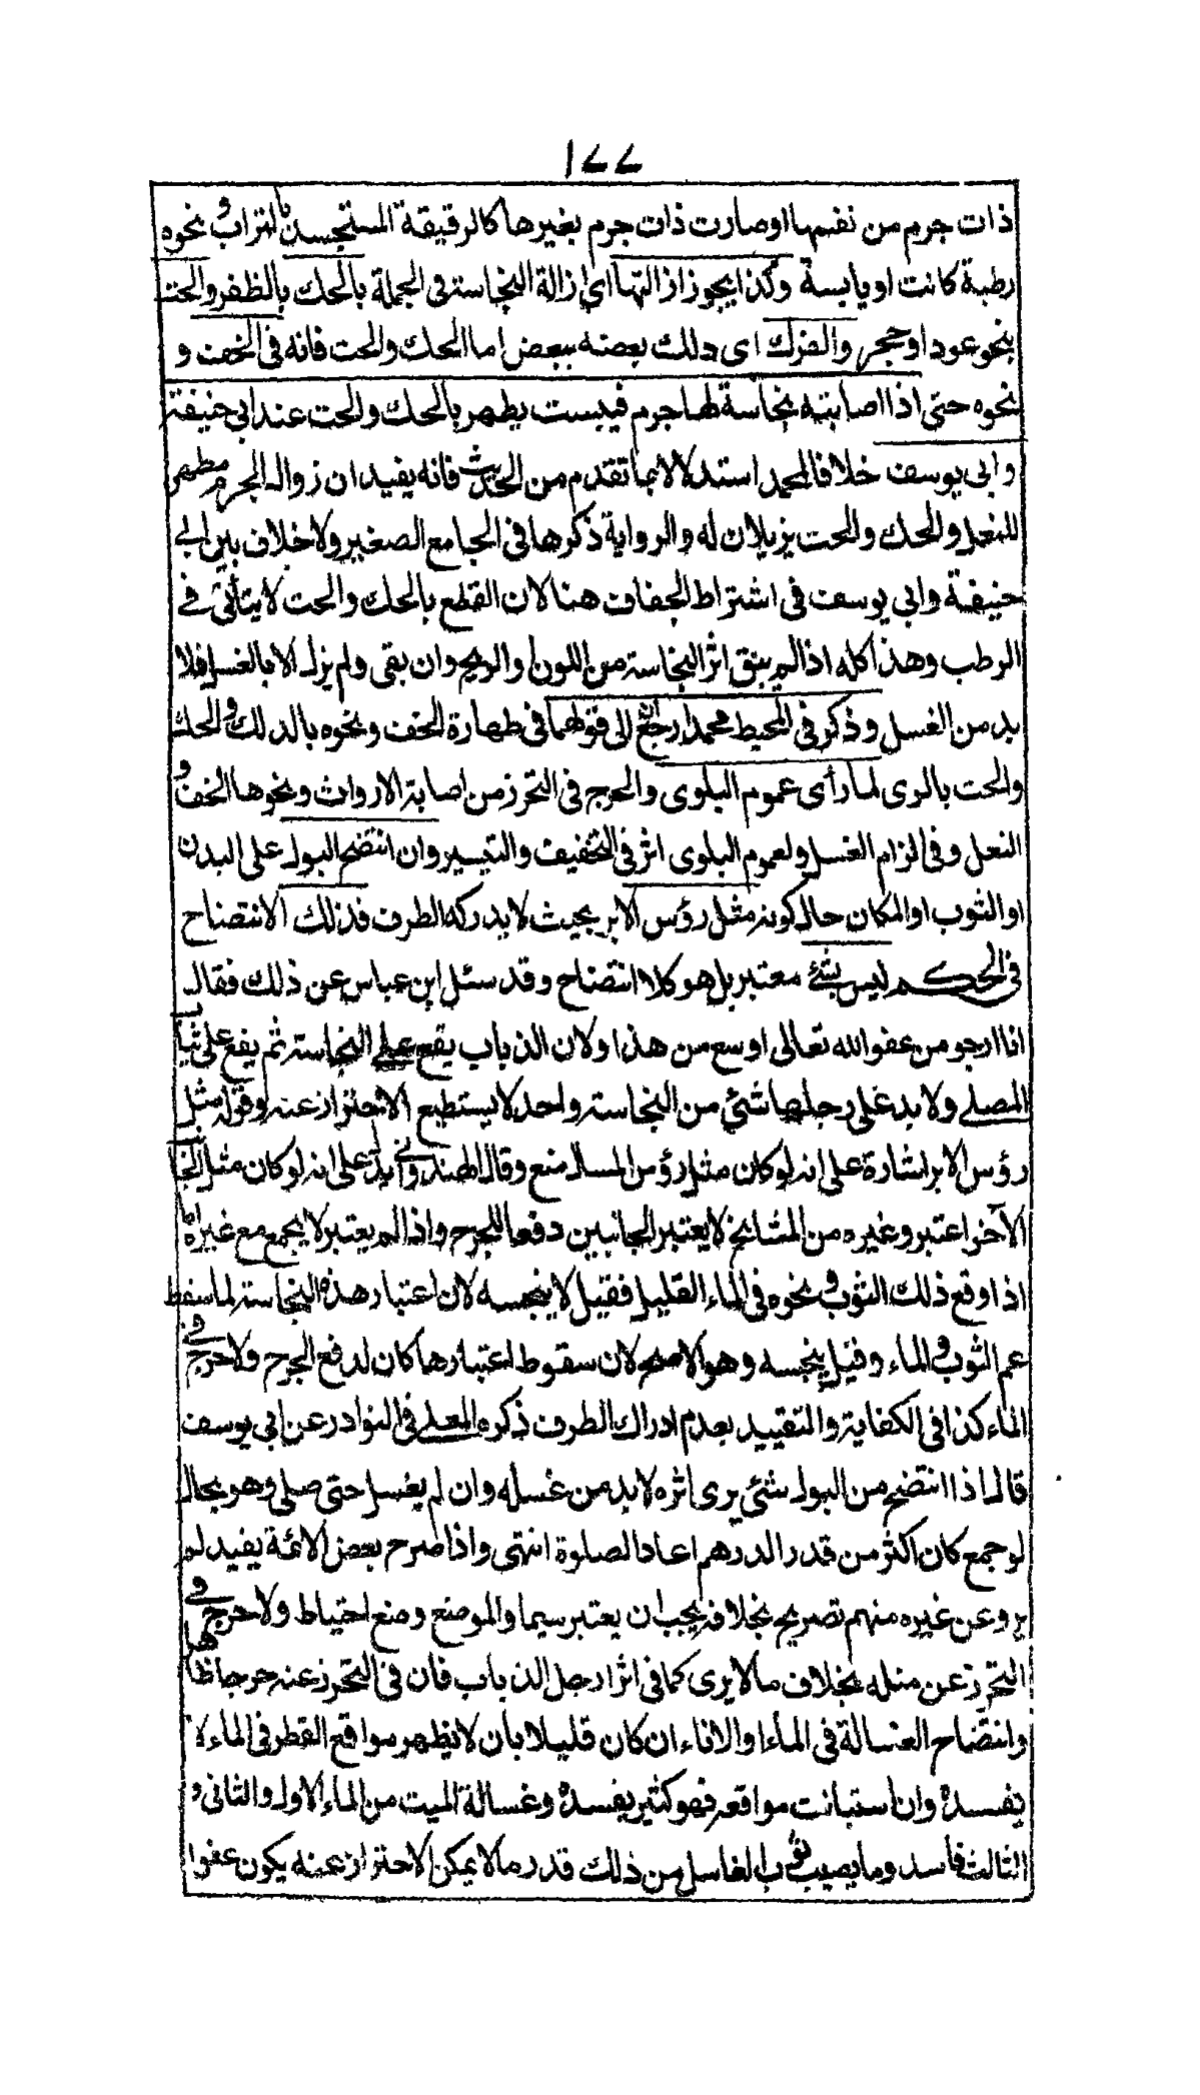 ١٧٧
ذات جرم من نفسها او صارت ذات جرم بغيرها كالرقيقة المستجسدة بالتراب ونحوه
رطبة كانت او يابسة وكذا يجوز ازالتها اى ازالة النجاسة فى الجملة بالحك بالظفر والحت
بنحو عود او حجر والفرك اى دلك بعضه ببعض اما الحك والحت فانه فى الخف و
نحوه حتى اذا اصابته نجاسة لها جرم فيبست يطهر بالحك والحت عند ابى حنيفة
وابى يوسف خلافا لمحمد استدلالا بما تقدم من الحديث فانه يفيد ان زوال الجرم مطهر
للنعل والحك والحت يزيلان له والرواية ذكرها فى الجامع الصغير ولا خلاف بين ابى
حنيفة وابى يوسف فى اشتراط الجفاف هنا لان القطع بالحك والحت لا يتأتى فى
الرطب وهذا كله اذا لم يبق اثر النجاسة من اللون والريح وان بقى ولم يزل الا بالغسل فلا
بد من الغسل وذكر فى المحيط ان محمدا رجع الى قولهما فى طهارة الخف ونحوه بالدلك والحك
والحت بالرى لما رأى عموم البلوى والحرج فى التحرز من اصابة الارواث ونحوها الخف و
النعل وفى الزام الغسل ولعموم البلوى اثر فى التخفيف والتيسير وان انتضح البول على البدن
او الثوب او المكان حال كونه مثل رؤس الابر بحيث لا يدركه الطرف فذلك الانتضاح
فى الحكم ليس بشئ معتبر بل هو كلا انتضاح وقد سئل ابن عباس عن ذلك فقال
انا ارجو من عفو الله تعالى اوسع من هذا ولان الذباب يقع على النجاسة ثم يقع على ثياب
المصلى ولا بد على رجلها شئ من النجاسة واحد لا يستطيع الاحتراز عنه وقوله مثل
رؤس الابر اشارة على انه لو كان مثل رؤس المسال منع وقال الهندوانى يدل على انه لو كان مثل الجانب
الآخر اعتبر وغيره من المشائخ لا يعتبر الجانبين دفعا للحرج واذا لم يعتبر لا يجمع مع غيره اما
اذا وقع ذلك الثوب ونحوه فى الماء القليل فقيل لا ينجسه لان اعتبار هذه النجاسة لما سقط
عم الثوب والماء وقيل ينجسه وهو الاصح لان سقوط اعتبارها كان لدفع الحرج ولا حرج فى
الماء كذا فى الكفاية والتقييد بعدم ادراك الطرف ذكره المعلى فى النوادر عن ابى يوسف
قال اذا انتضح من البول شئ يرى اثره لا بد من غسله وان لم يغسل حتى صلى وهو بحال
لو جمع كان اكثر من قدر الدرهم اعاد الصلوة انتهى واذا صرح بعض الائمة بقيد لم
يرو عن غيره منهم تصريح بخلافه يجب ان يعتبر سيما والموضع وضع احتياط ولا حرج فى
التحرز عن مثله بخلاف ما لا يرى كما فى اثر ارجل الذباب فان فى التحرز عنه حرجا ظاهر
وانتضاح الغسالة فى الماء او الاناء ان كان قليلا بأن لا يظهر مواقع القطر فى الماء لا
يفسده وان استبانت مواقعه فهو كثير يفسده وغسالة الميت من الماء الاول والثانى و
الثالث فاسد وما يصيب ثوب الغاسل من ذلك قدر ما لا يمكن الاحتراز عنه يكون عفوا